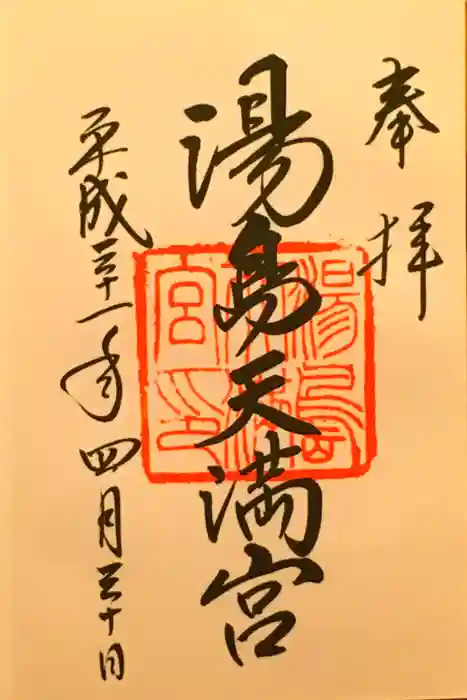 奉拝
湯島天満宮
平成三十一年四月三十日
湯島天満宮印